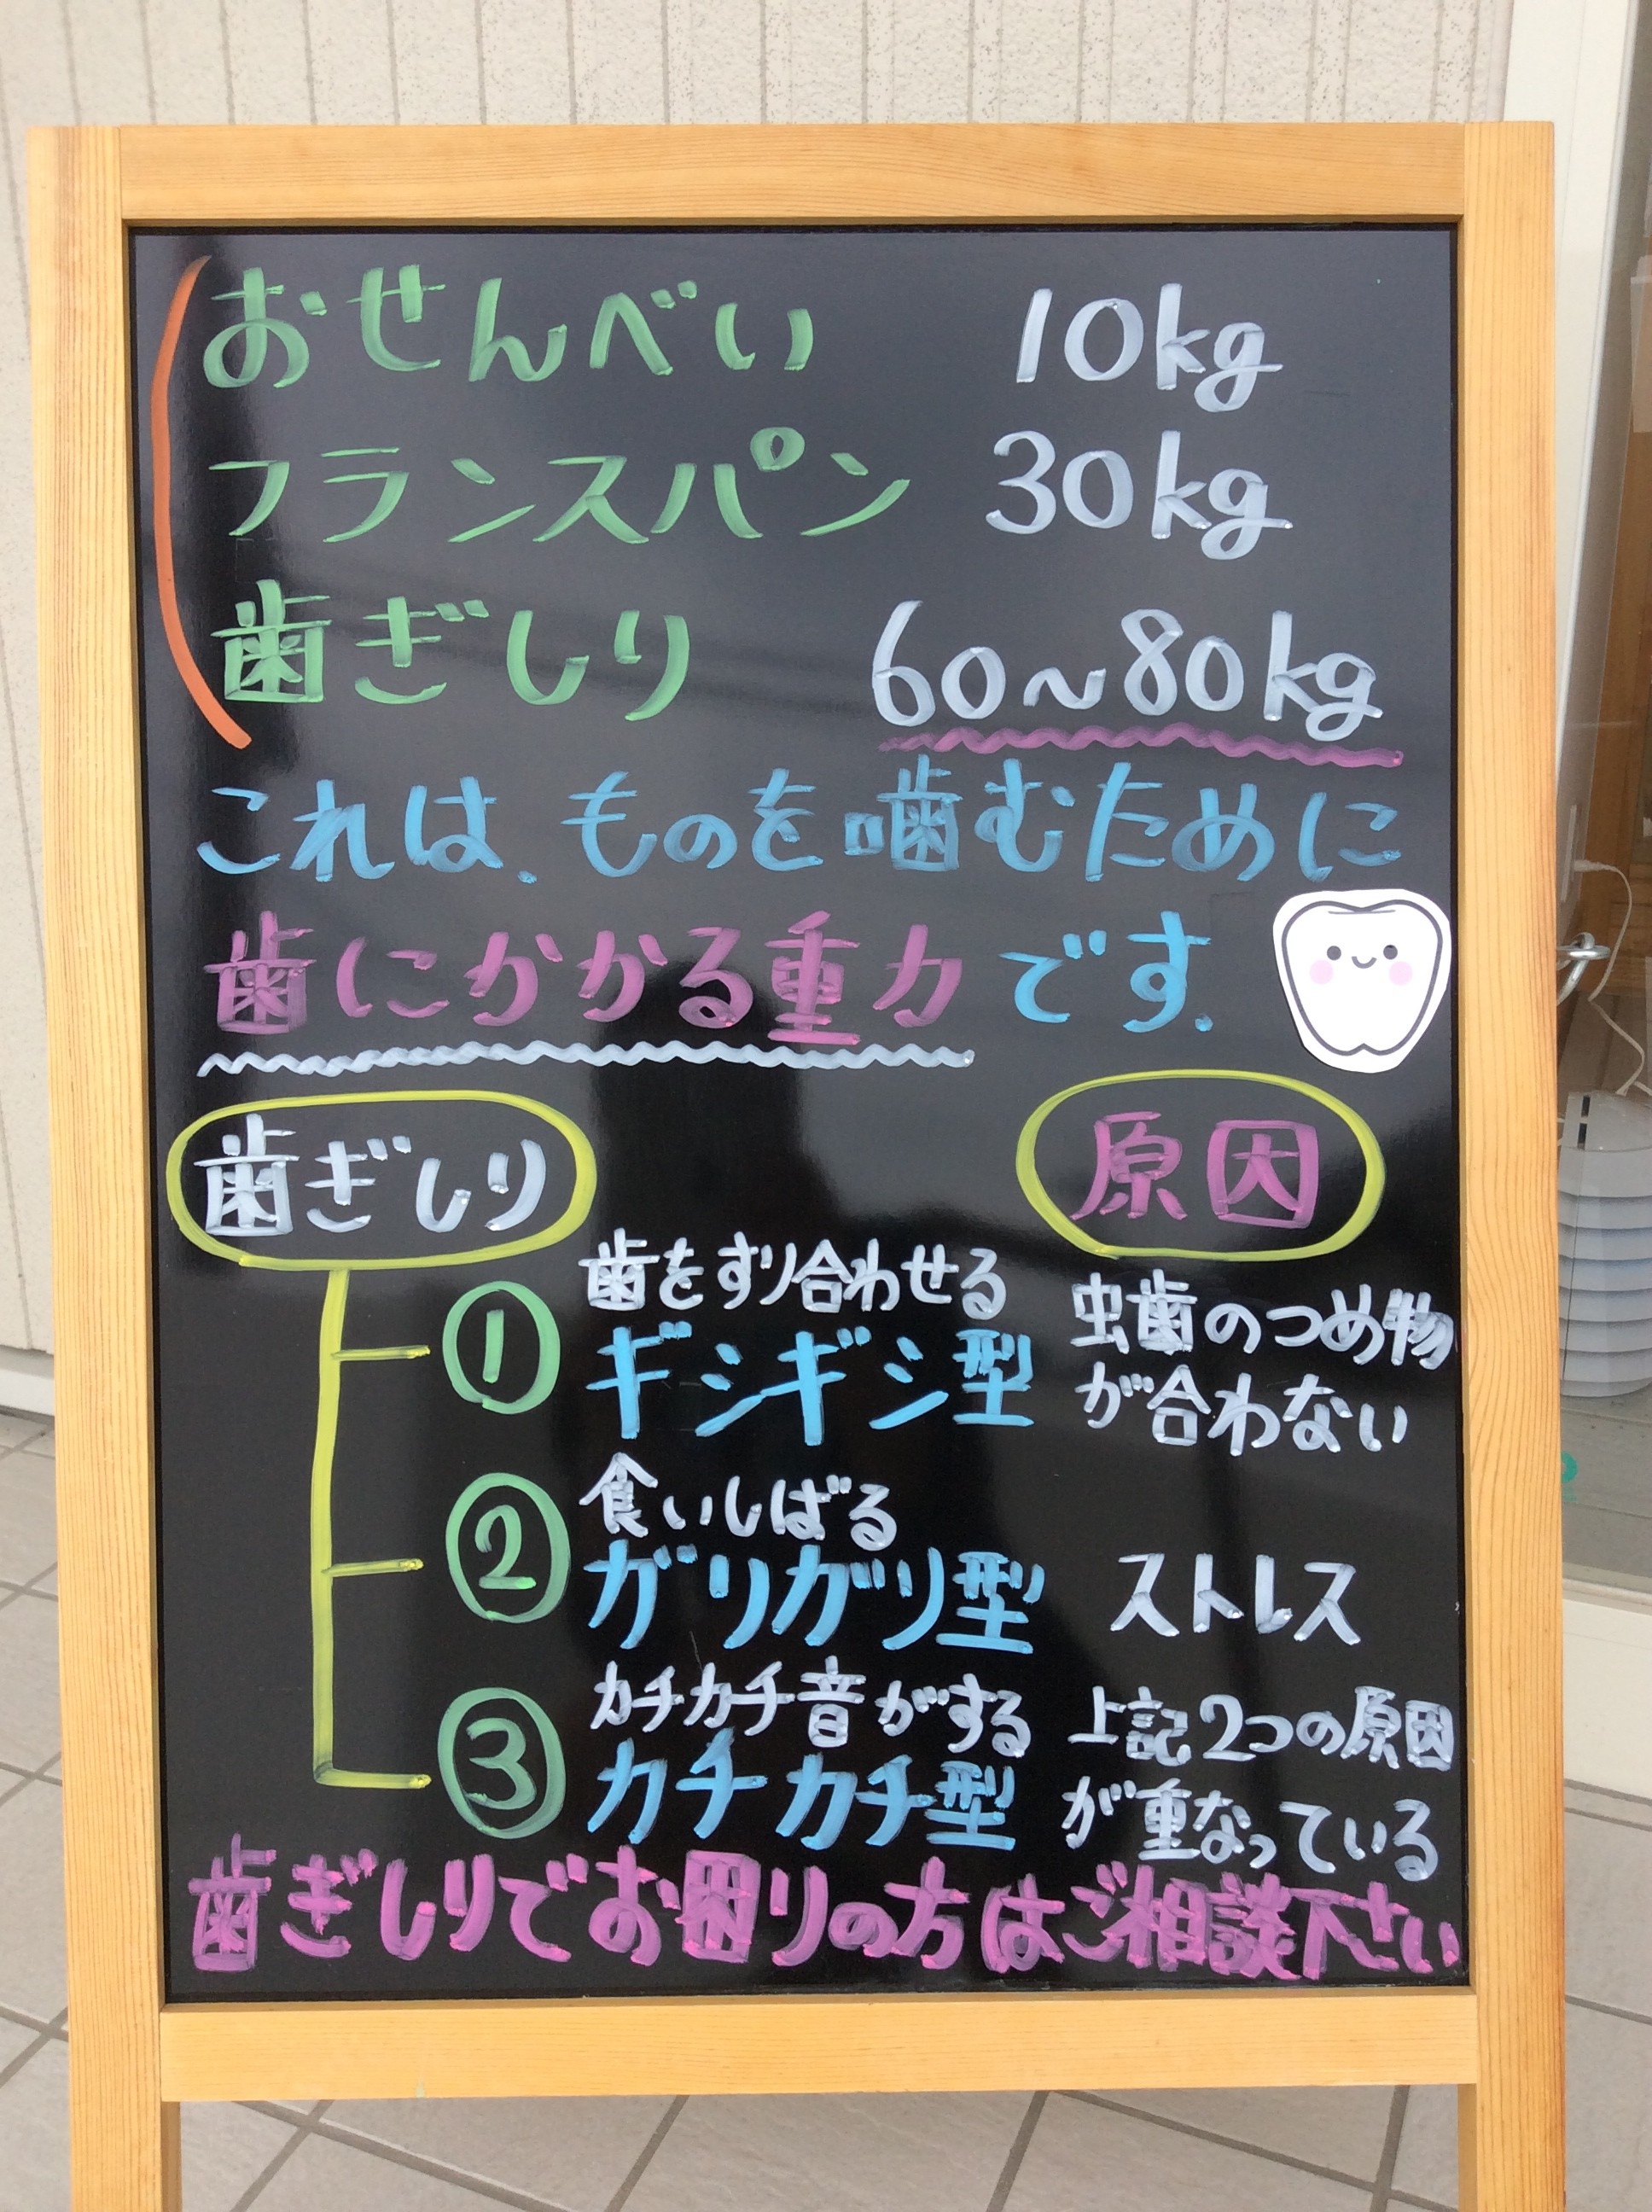 おせんべい 10kg
フランスパン 30kg
歯ぎしり 60~80kg
これは、ものを噛むために
歯にかかる重力です.
歯ぎしり 原因
① 歯をすり合わせる
ギシギシ型
虫歯のつめ物
が合わない
② 食いしばる
ガリガリ型 ストレス
③ カチカチ音がする
カチカチ型
上記2つの原因
が重なっている
歯ぎしりでお困りの方はご相談下さい